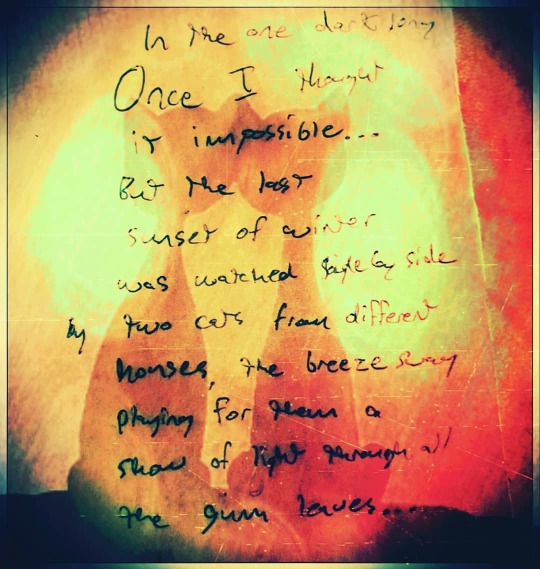 In the one dark long
Once I thought
it impossible...
But the last
sunset of winter
was watched side by side
by two cats from different
houses, the breeze sway
playing for them a
show of light through all
the gum leaves....